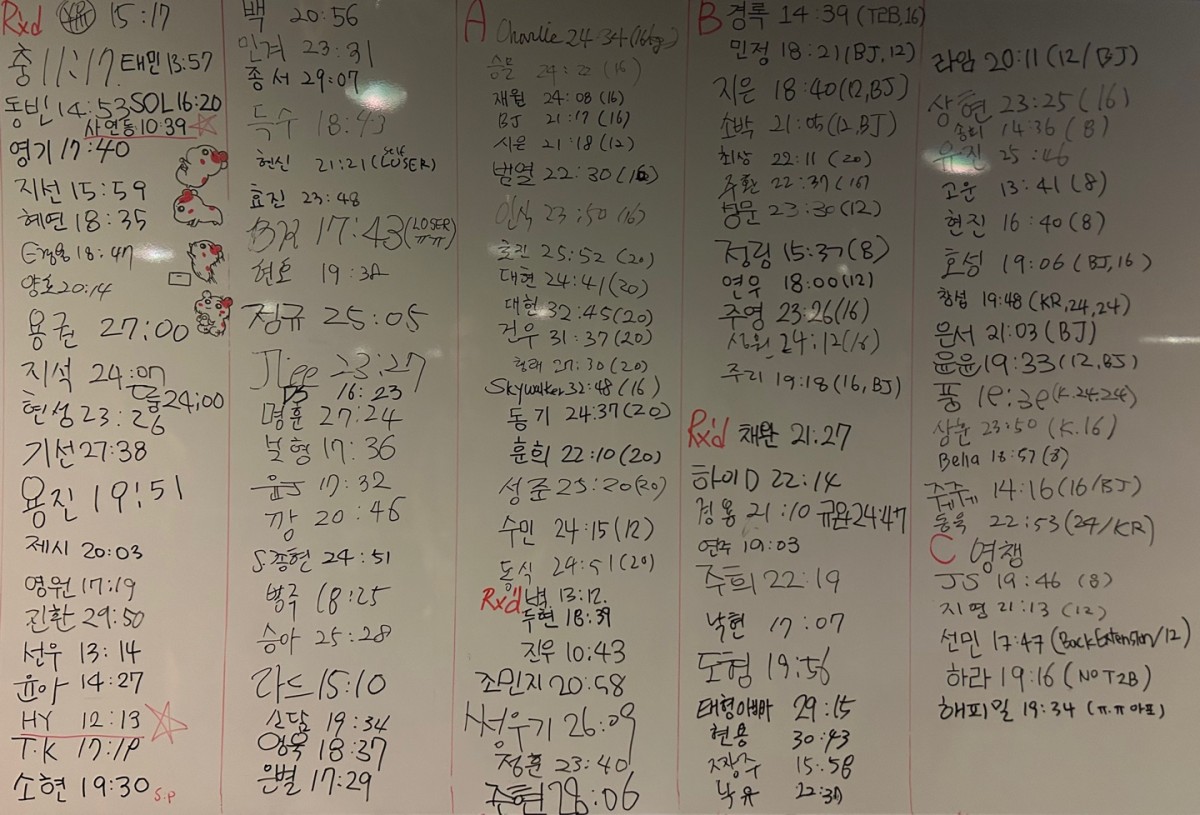 Rxd 15:17
충 11:17 태민 13:57
동빈 14:53 SOL 16:20
사연동 10:39
영기 17:40
지선 15:59
혜연 18:35
18:47
양호 20:14
용권 27:00
지석 24:07
24:00
현성 23:26
기선 27:38
용진 19:51
제시 20:03
영원 17:19
진환 29:50
선우 13:14
윤아 14:27
HY 12:13
T.K 17:19
소현 19:30 S.P
백 20:56
민겨 23:31
종서 29:07
득수 18:43
현신 21:21 (self LOSER)
효진 23:48
BR 17:43 (LOSER ㅠㅠ)
현호 19:38
정규 25:05
JLee 23:27
DS 16:23
명훈 27:24
보형 17:36
윤J 17:32
깡 20:46
S.종현 24:51
방주 18:25
승아 25:28
라드 15:10
소담 19:34
영욱 18:37
은별 17:29
A Charlie 24:34
승문 24:22 (16)
재원 24:08 (16)
BJ 21:17 (16)
시은 21:18 (12)
범열 22:30 (16)
인식 23:50 (16)
호진 25:52 (20)
대현 24:41 (20)
대헌 32:45 (20)
건우 31:37 (20)
(20)
Skywalker 32:48 (16)
동기 24:37 (20)
훈희 22:10 (20)
성준 25:20 (20)
수민 24:15 (12)
동식 29:51 (20)
Rx'd 13:12
두현 18:39
진우 10:43
조민지 20:58
서우기 26:09
정훈 23:40
주현 28:06
B 경록 14:39 (T2B, 16)
민정 18:21 (BJ, 12)
지은 18:40 (12, BJ)
소박 21:05 (12, BJ)
최상 22:11 (20)
주환 22:37 (16)
방문 23:30 (12)
정림 15:37 (8)
연우 18:00 (12)
주영 23:26 (16)
상원 24:12 (16)
주리 19:18 (16, BJ)
Rx'd 채완 21:27
하이D 22:14
경용 21:10 규욘 24:47
연주 19:03
주희 22:19
낙현 17:07
도형 19:56
태형아빠 29:15
현용 30:43
짜장주 15:58
낙유 22:30
라암 20:11 (12/BJ)
상현 23:25 (16)
송희 14:36 (8)
유진 25:46
고운 13:41 (8)
현진 16:40 (8)
효성 19:06 (BJ, 16)
창섭 19:48 (KR, 24, 24)
문서 21:03 (BJ)
윤윤 19:33 (12, BJ)
풍 19:39 (K. 24. 24)
상훈 23:50 (K. 16)
Bella 18:57 (8)
쥬쥬 14:16 (16/BJ)
동욱 22:53 (24/KR)
C 영챙
JS 19:46 (8)
지영 21:13 (12)
선민 17:47 (Back Extension/12)
하라 19:16 (NO T2B)
해피일 19:34 (ㅠ.ㅠ 아포)